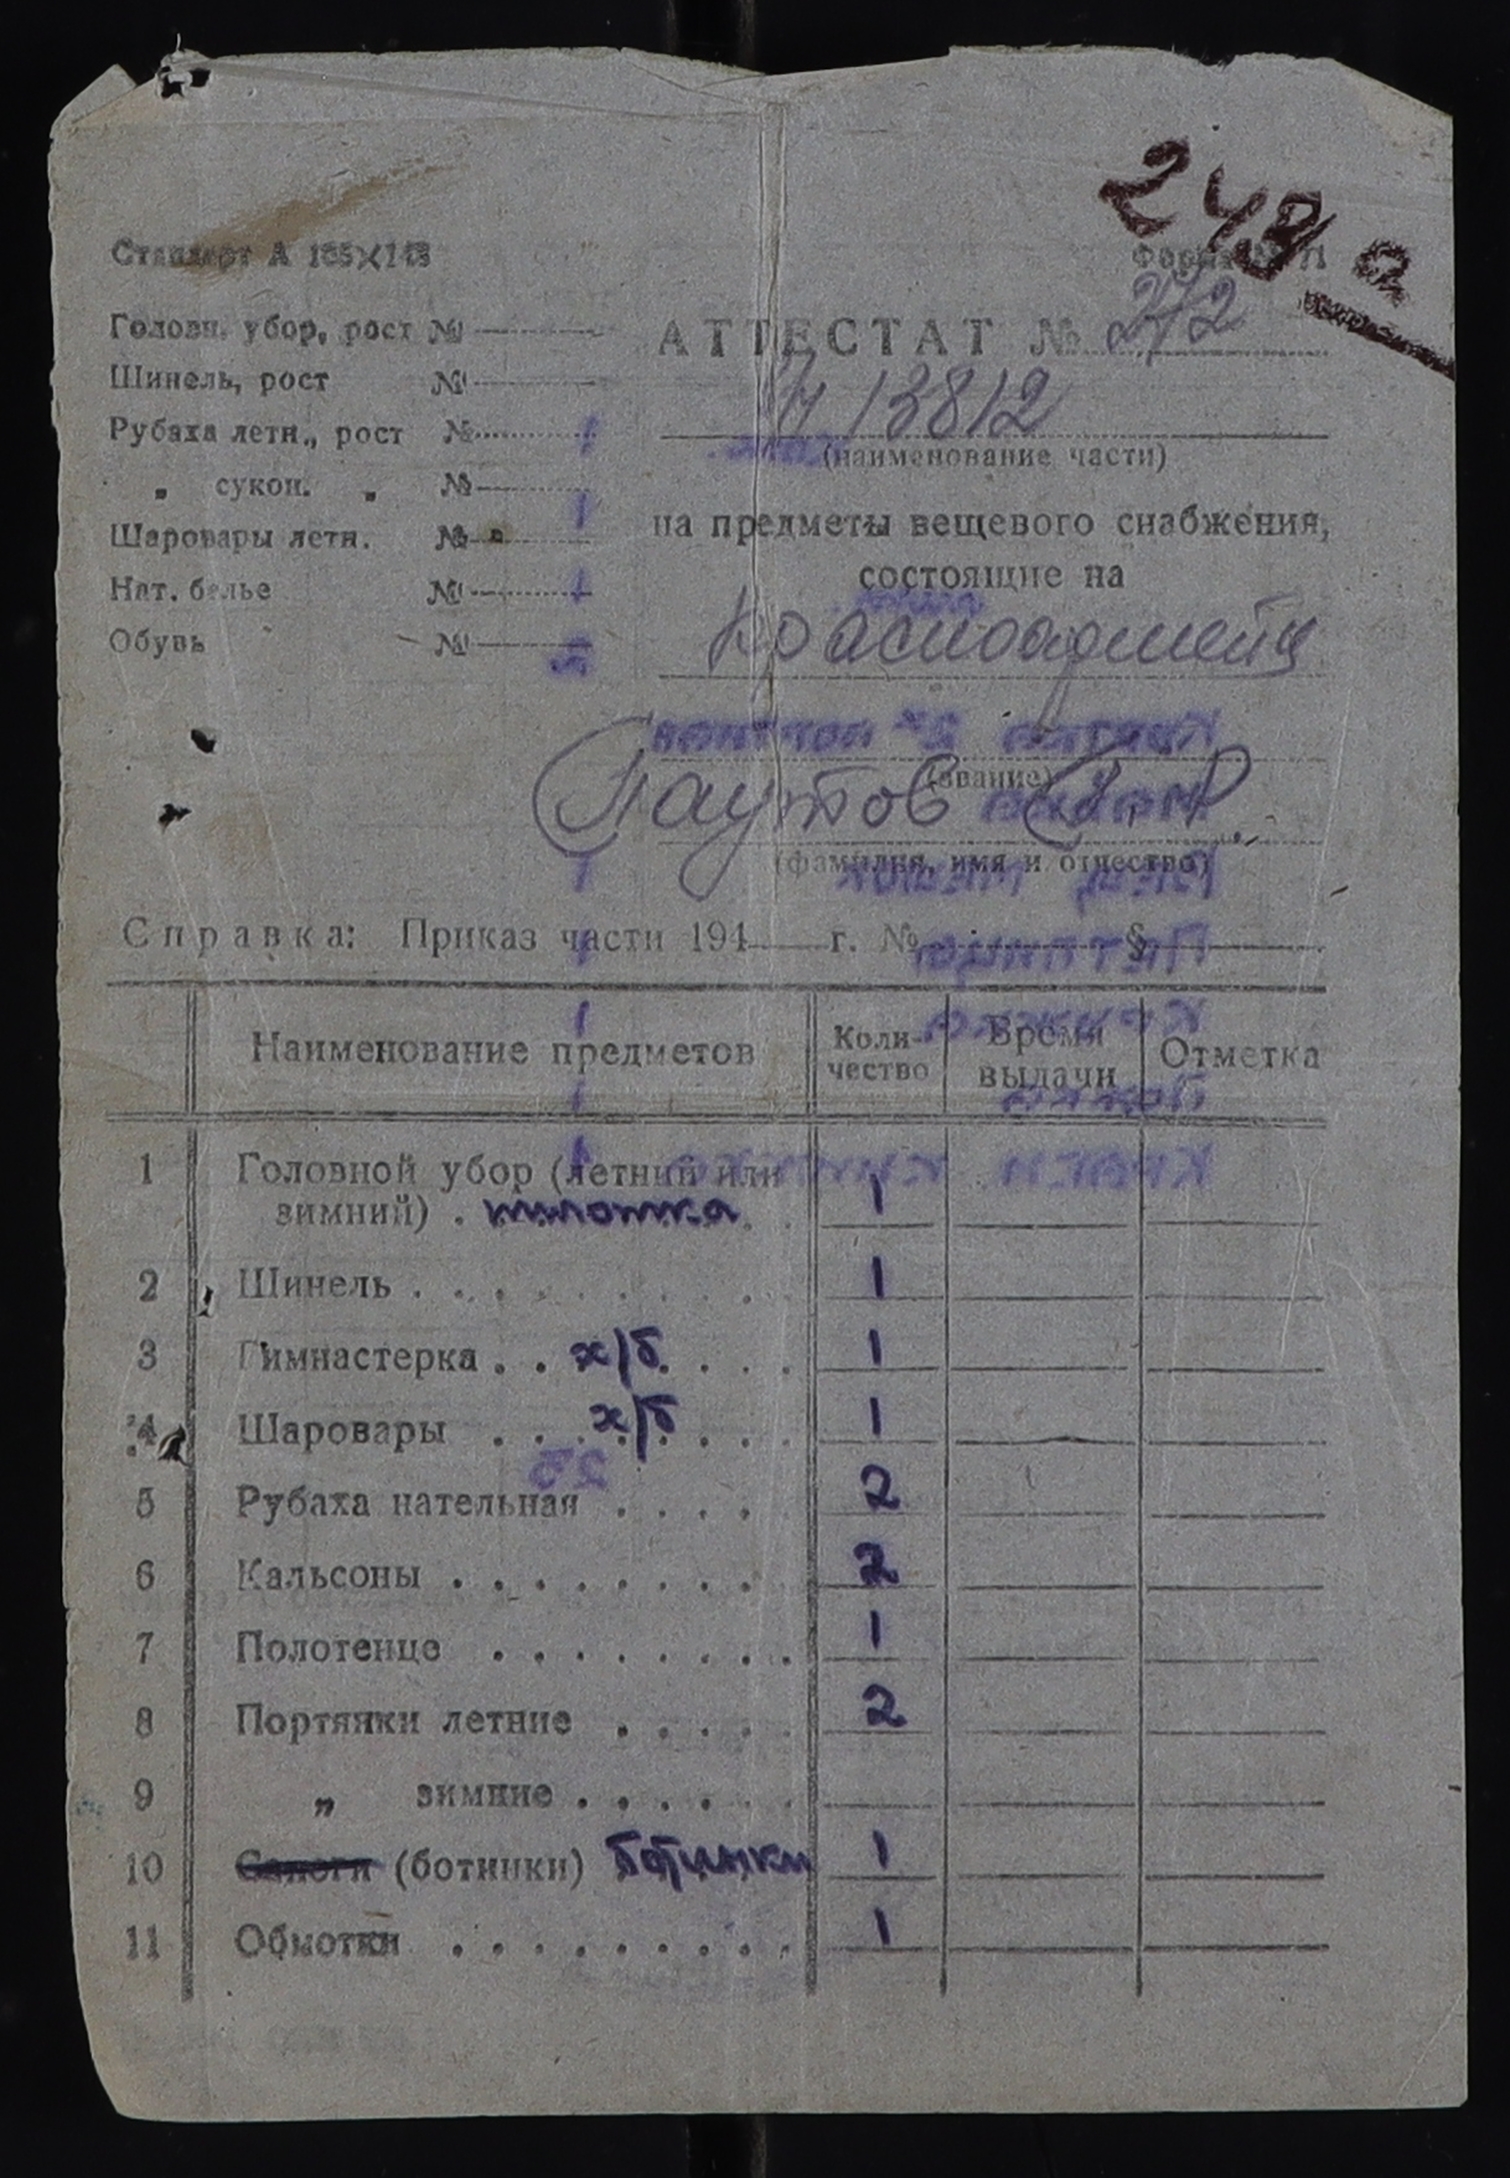 249 а
Стандарт А 105×148
Форма № 71
Головн. убор, рост №
Шинель, рост №
Рубаха летн., рост №
„ сукон. „ №
Шаровары летн. №
Нат. белье №
Обувь №
АТТЕСТАТ № 272
13812
(наименование части)
на предметы вещевого снабжения,
состоящие на
Красноармейца
(звание)
Паутов
(фамилия, имя и отчество)
Справка: Приказ части 194 г. № §
Наименование предметов Коли- Время Отметка
чество выдачи
1 Головной убор (летний или
зимний) . пилотка 1
2 Шинель . . . . . . . . . . 1
3 Гимнастерка . . х/б . . . . 1
4 Шаровары . . х/б . . . 1
5 Рубаха нательная . . . . . 2
6 Кальсоны . . . . . . . . 2
7 Полотенце . . . . . . . . 1
8 Портянки летние . . . . . 2
9 „ зимние . . . . . .
10 Сапоги (ботинки) ботинки 1
11 Обмотки . . . . . . . . . 1